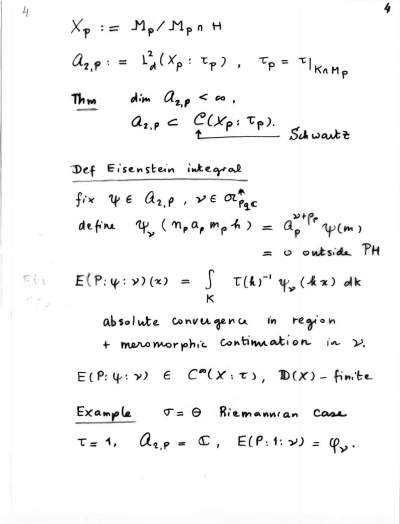 4
4
X_P := M_P / M_P ∩ H
𝒜_{2,P} := L²_d (X_P : τ_P) , τ_P = τ|_{K∩M_P}
Thm dim 𝒜_{2,P} < ∞ ,
𝒜_{2,P} ⊂ 𝒞(X_P : τ_P).
Schwartz
Def Eisenstein integral
fix ψ ∈ 𝒜_{2,P} , ν ∈ 𝔞*_{Pqc}
define ψ_ν (n_P a_P m_P h) = a_P^{ν+ρ_P} ψ(m)
= 0 outside PH
E(P:ψ:ν)(x) = ∫_K τ(k)⁻¹ ψ_ν (kx) dk
absolute convergence in region
+ meromorphic continuation in ν.
E(P:ψ:ν) ∈ C^∞(X:τ), 𝔻(X)-finite
Example σ = θ Riemannian case
τ = 1, 𝒜_{2,P} = ℂ, E(P:1:ν) = φ_ν.